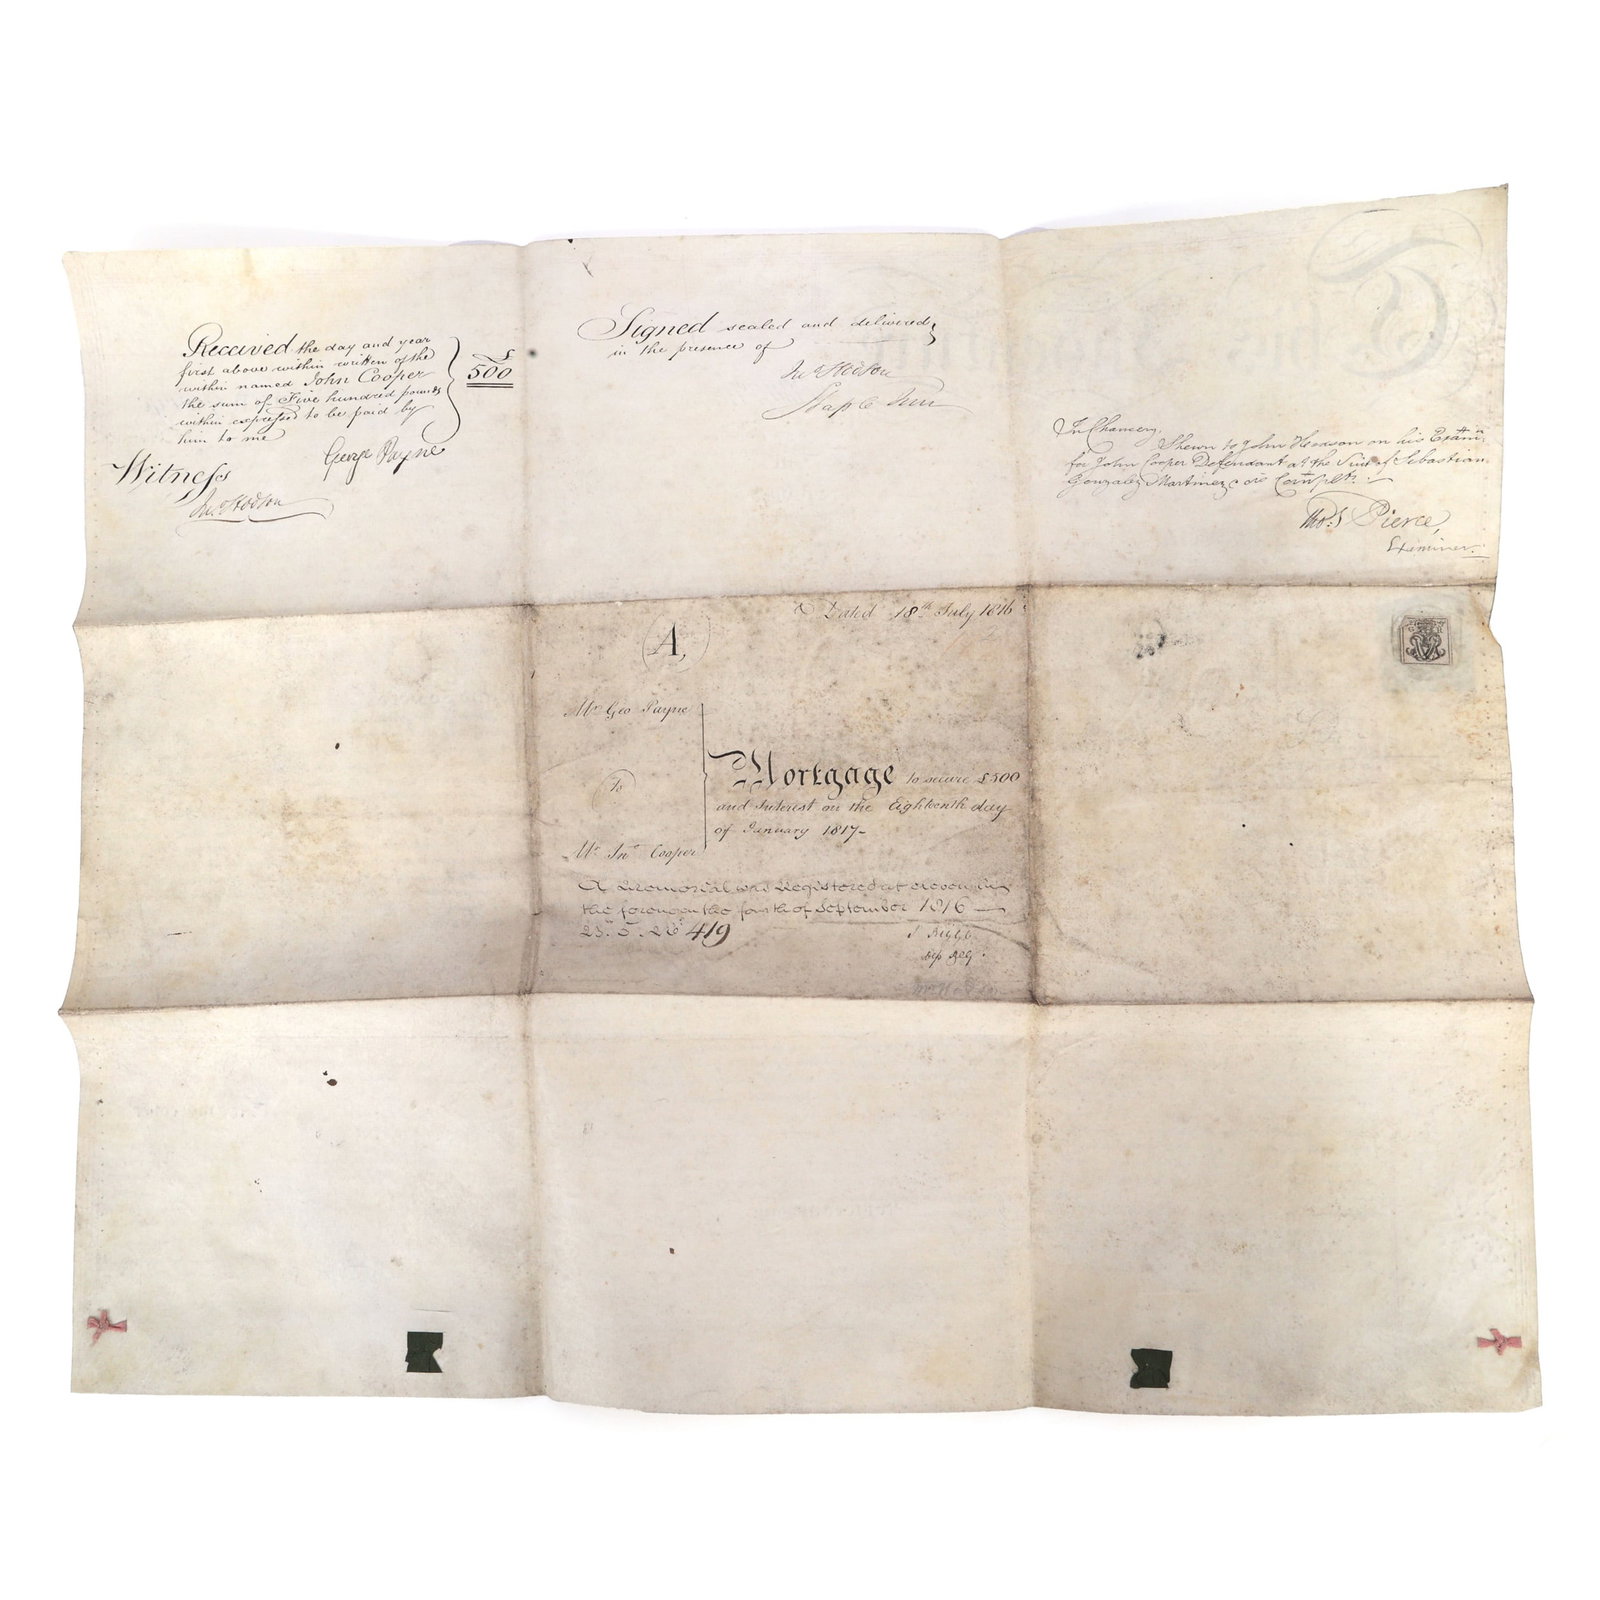 Received the day and year
first above within written of the
within named John Cooper
the sum of Five hundred pounds
within expressed to be paid by
him to me
£
500
George Payne
Witness
Jno. Hodson
Signed sealed and delivered
in the presence of
Jno. Hodson
Staple Inn
In Chancery.
Shewn to John Hewson on his Examn.
for John Cooper Defendant at the Suit of Sebastian
Gonzalez Martinez & ors Complts.
Thos. Pierce,
Examiner.
Dated 18th July 1816
A,
Mr. Geo Payne
To
Mr. Jno. Cooper
Mortgage to secure £500
and Interest on the Eighteenth day
of January 1817-
A Memorial was Registered at eleven in
the forenoon the fourth of September 1816
419
Dep Reg.